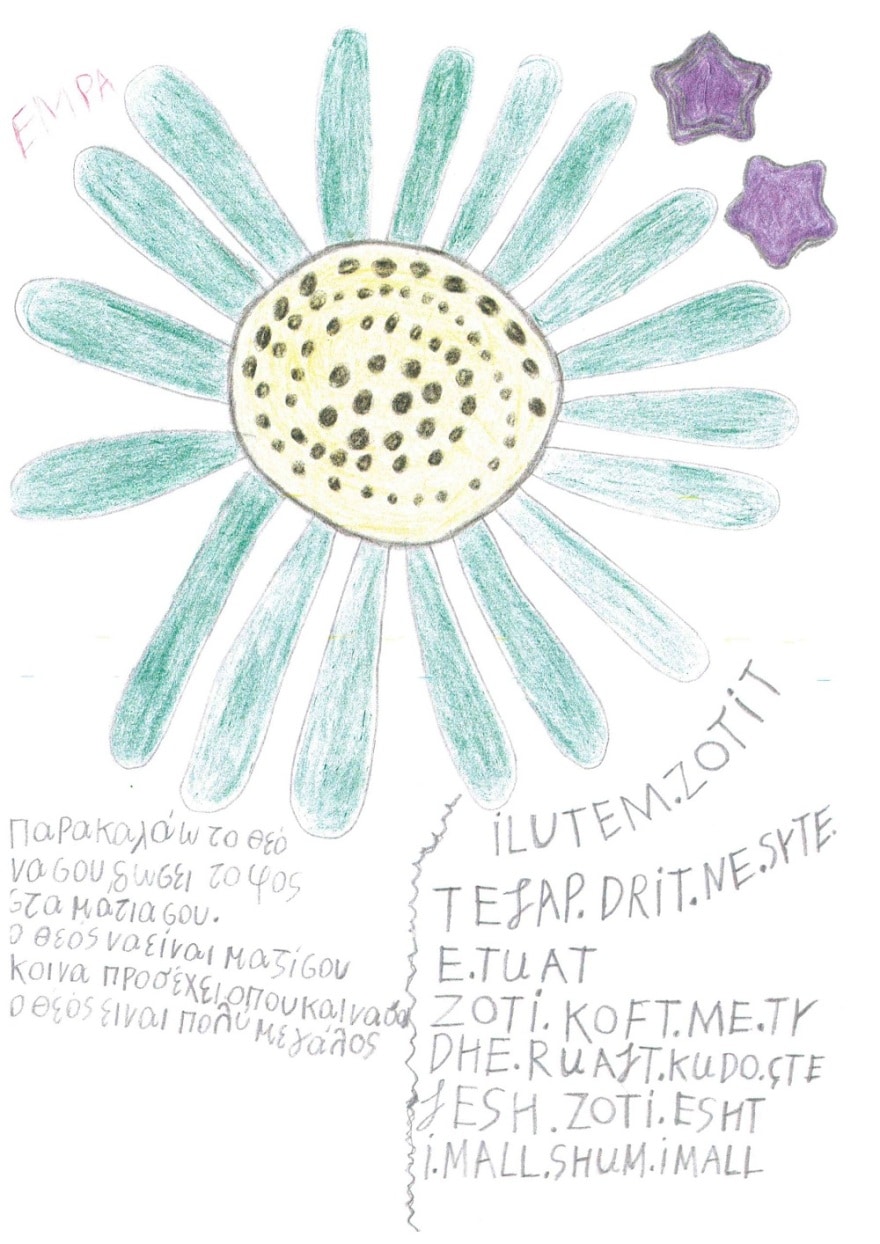 ΕΜΡΑ
Παρακαλάω το θεό
να σου δωσει το φος
στα ματια σου.
ο θεός να είναι μαζί σου
κοινα προσέχει οπου και να
ο θεός ειναι πολύ μεγάλος
iLUTEM.ZOTiT
TEJAP.DRiT.NE.SYTE.
E.TUAT
ZOTi.KOFT.ME.TY
DHE.RUAJT.KUDO.ÇTE
JESH.ZOTi.ESHT
i.MALL.SHUM.iMALL